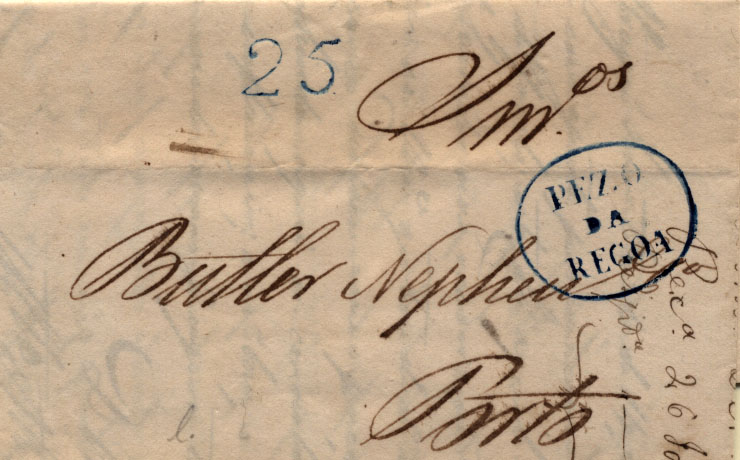 25
Snr.os
PEZO
DA
REGOA
Butler Nephew
Porto
26